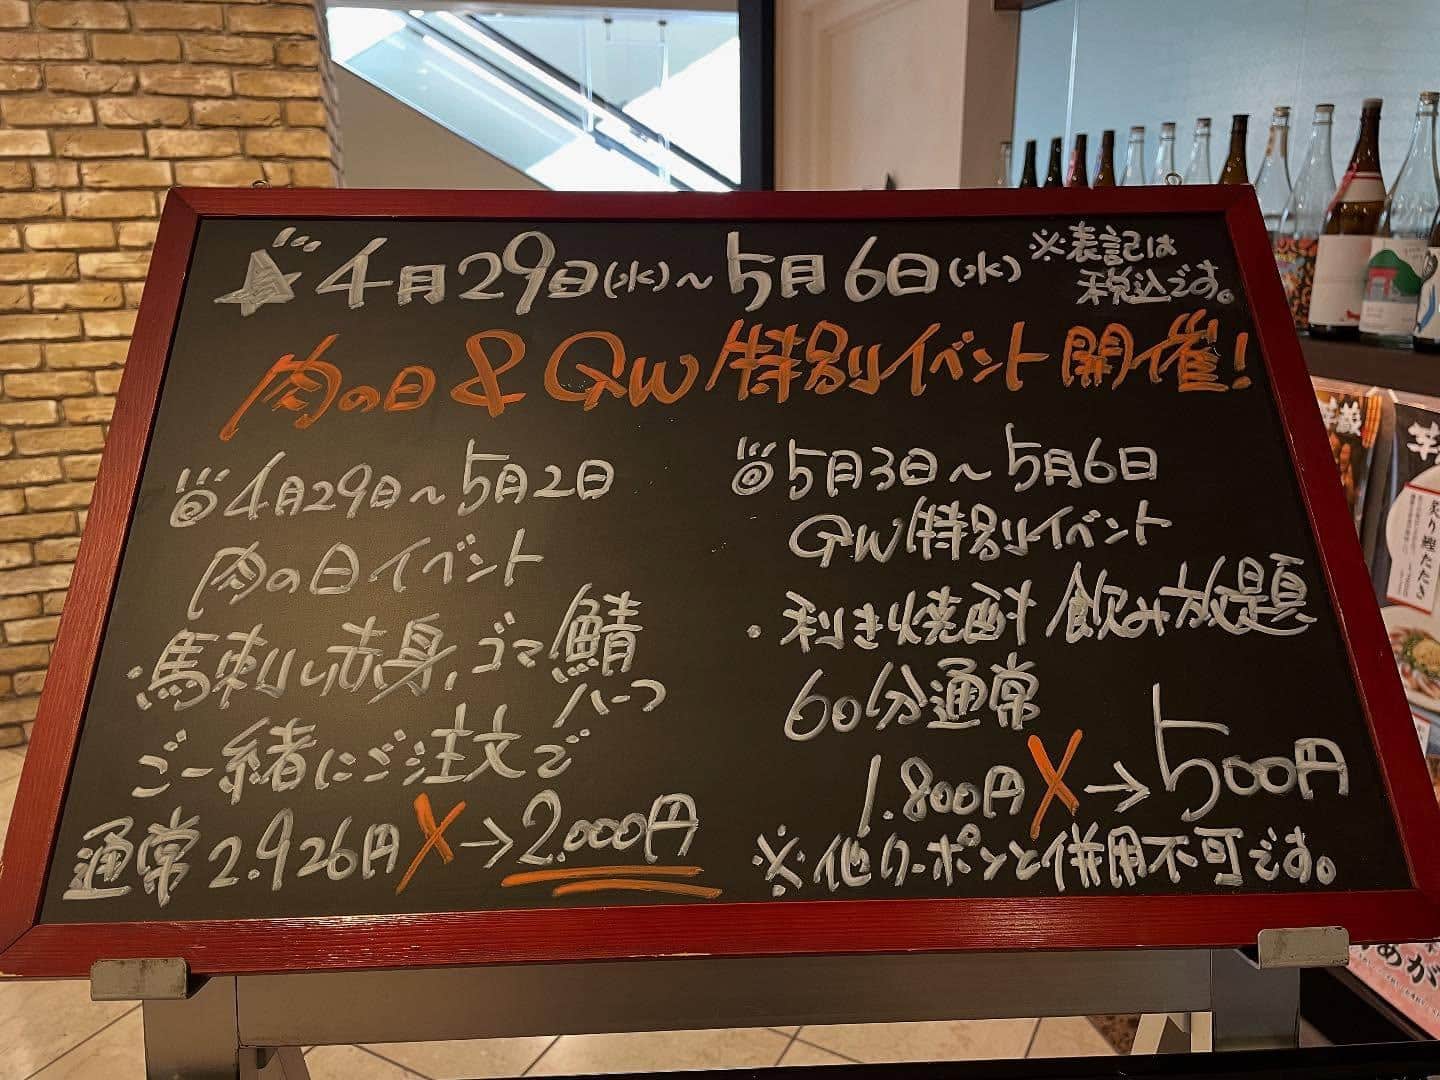 4月29日(水)～5月6日(水)
※表記は
税込です。
肉の日&GW特別イベント開催!
4月29日～5月2日
肉の日イベント
・馬刺し赤身、ゴマ鯖
ハーフ
ご一緒にご注文で
通常2.926円→2.000円
5月3日～5月6日
GW特別イベント
・利き焼酎飲み放題
60分通常
1.800円→500円
※他クーポンと併用不可です。
炙り鰹たたき